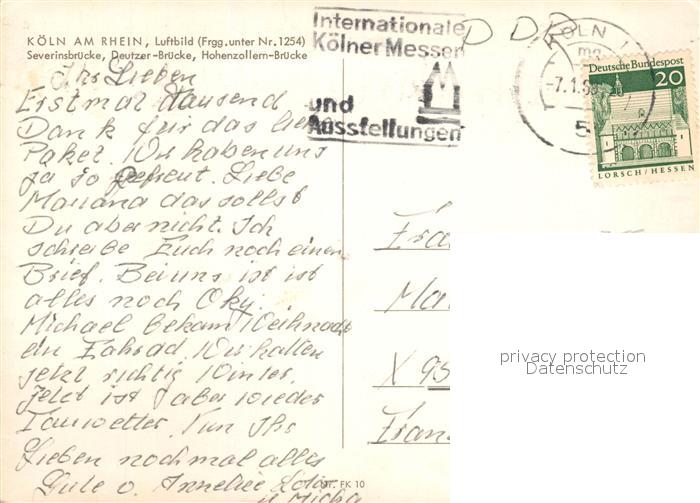 KÖLN AM RHEIN, Luftbild (Frgg. unter Nr. 1254)
Severinsbrücke, Deutzer-Brücke, Hohenzollern-Brücke
Ihr Lieben
Erstmal tausend
Dank für das liebe
Paket. Wir haben uns
ja so gefreut. Liebe
Mariana das sollst
Du aber nicht. Ich
schreibe Euch noch einen
Brief. Bei uns ist ist
alles noch Oky.
Michael bekam Weihnacht
ein Fahrad. Wir hatten
jetzt richtig Winter.
Jetzt ist aber wieder
Tauwetter. Nun Ihr
Lieben nochmal alles
Gute v. Annelie
u. Micha
Nr. FK 10
Internationale
Kölner Messen
und
Ausstellungen
DDR
KÖLN
mg
-7.1.
5
Deutsche Bundespost
20
LORSCH/HESSEN
Fra
Ma
X 95
Fran
privacy protection
Datenschutz